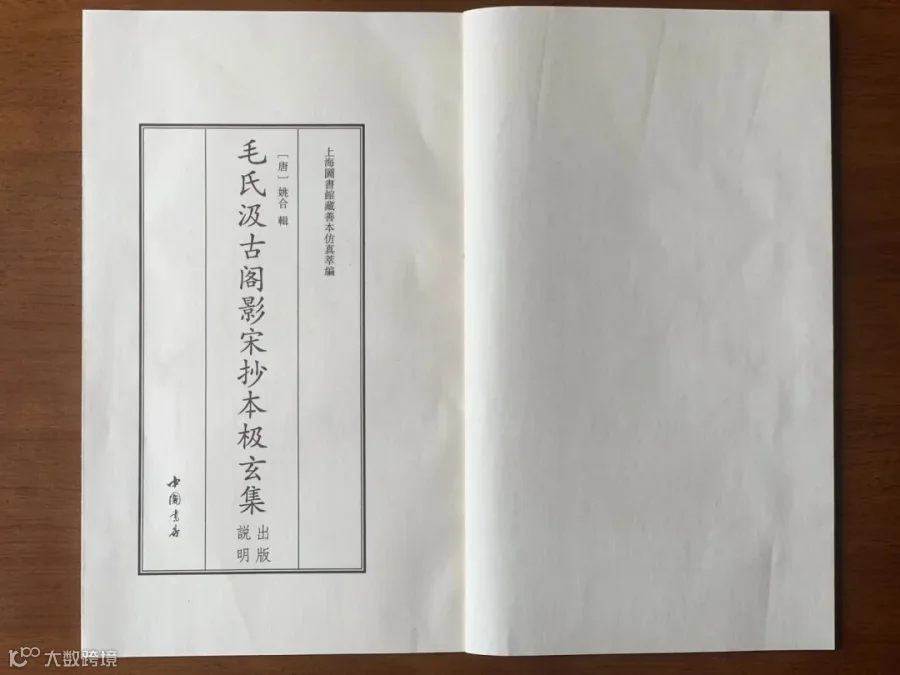 上海圖書館藏善本仿真萃編
［唐］姚合 輯
毛氏汲古阁影宋抄本极玄集
出版
説明
中國書店
大数跨境